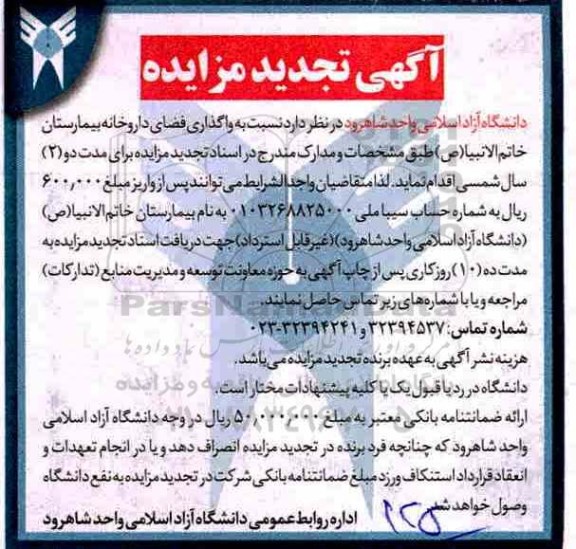 آگهی تجدید مزایده
دانشگاه آزاد اسلامی واحد شاهرود در نظر دارد نسبت به واگذاری فضای داروخانه بیمارستان
خاتم الانبیا(ص) طبق مشخصات و مدارک مندرج در اسناد تجدید مزایده برای مدت دو (۲)
سال شمسی اقدام نماید. لذا متقاضیان واجدالشرایط می توانند پس از واریز مبلغ ۶۰۰,۰۰۰
ریال به شماره حساب سیبا ملی ۰۱۰۳۲۶۸۸۲۵۰۰۰ به نام بیمارستان خاتم الانبیا(ص)
(دانشگاه آزاد اسلامی واحد شاهرود)(غیرقابل استرداد) جهت دریافت اسناد تجدید مزایده به
مدت ده (۱۰) روز کاری پس از چاپ آگهی به حوزه معاونت توسعه و مدیریت منابع (تدارکات)
مراجعه و یا با شماره های زیر تماس حاصل نمایند.
شماره تماس: ۳۲۳۹۴۵۳۷ و ۳۲۳۹۴۲۴۱-۰۲۳
هزینه نشر آگهی به عهده برنده تجدید مزایده می باشد.
دانشگاه در رد یا قبول یک یا کلیه پیشنهادات مختار است.
ارائه ضمانتنامه بانکی معتبر به مبلغ ۵۰,۰۰۰,۰۰۰ ریال در وجه دانشگاه آزاد اسلامی
واحد شاهرود که چنانچه فرد برنده در تجدید مزایده انصراف دهد و یا در انجام تعهدات و
انعقاد قرارداد استنکاف ورزد مبلغ ضمانتنامه بانکی شرکت در تجدید مزایده به نفع دانشگاه
وصول خواهد شد.
اداره روابط عمومی دانشگاه آزاد اسلامی واحد شاهرود
ParsNamadData